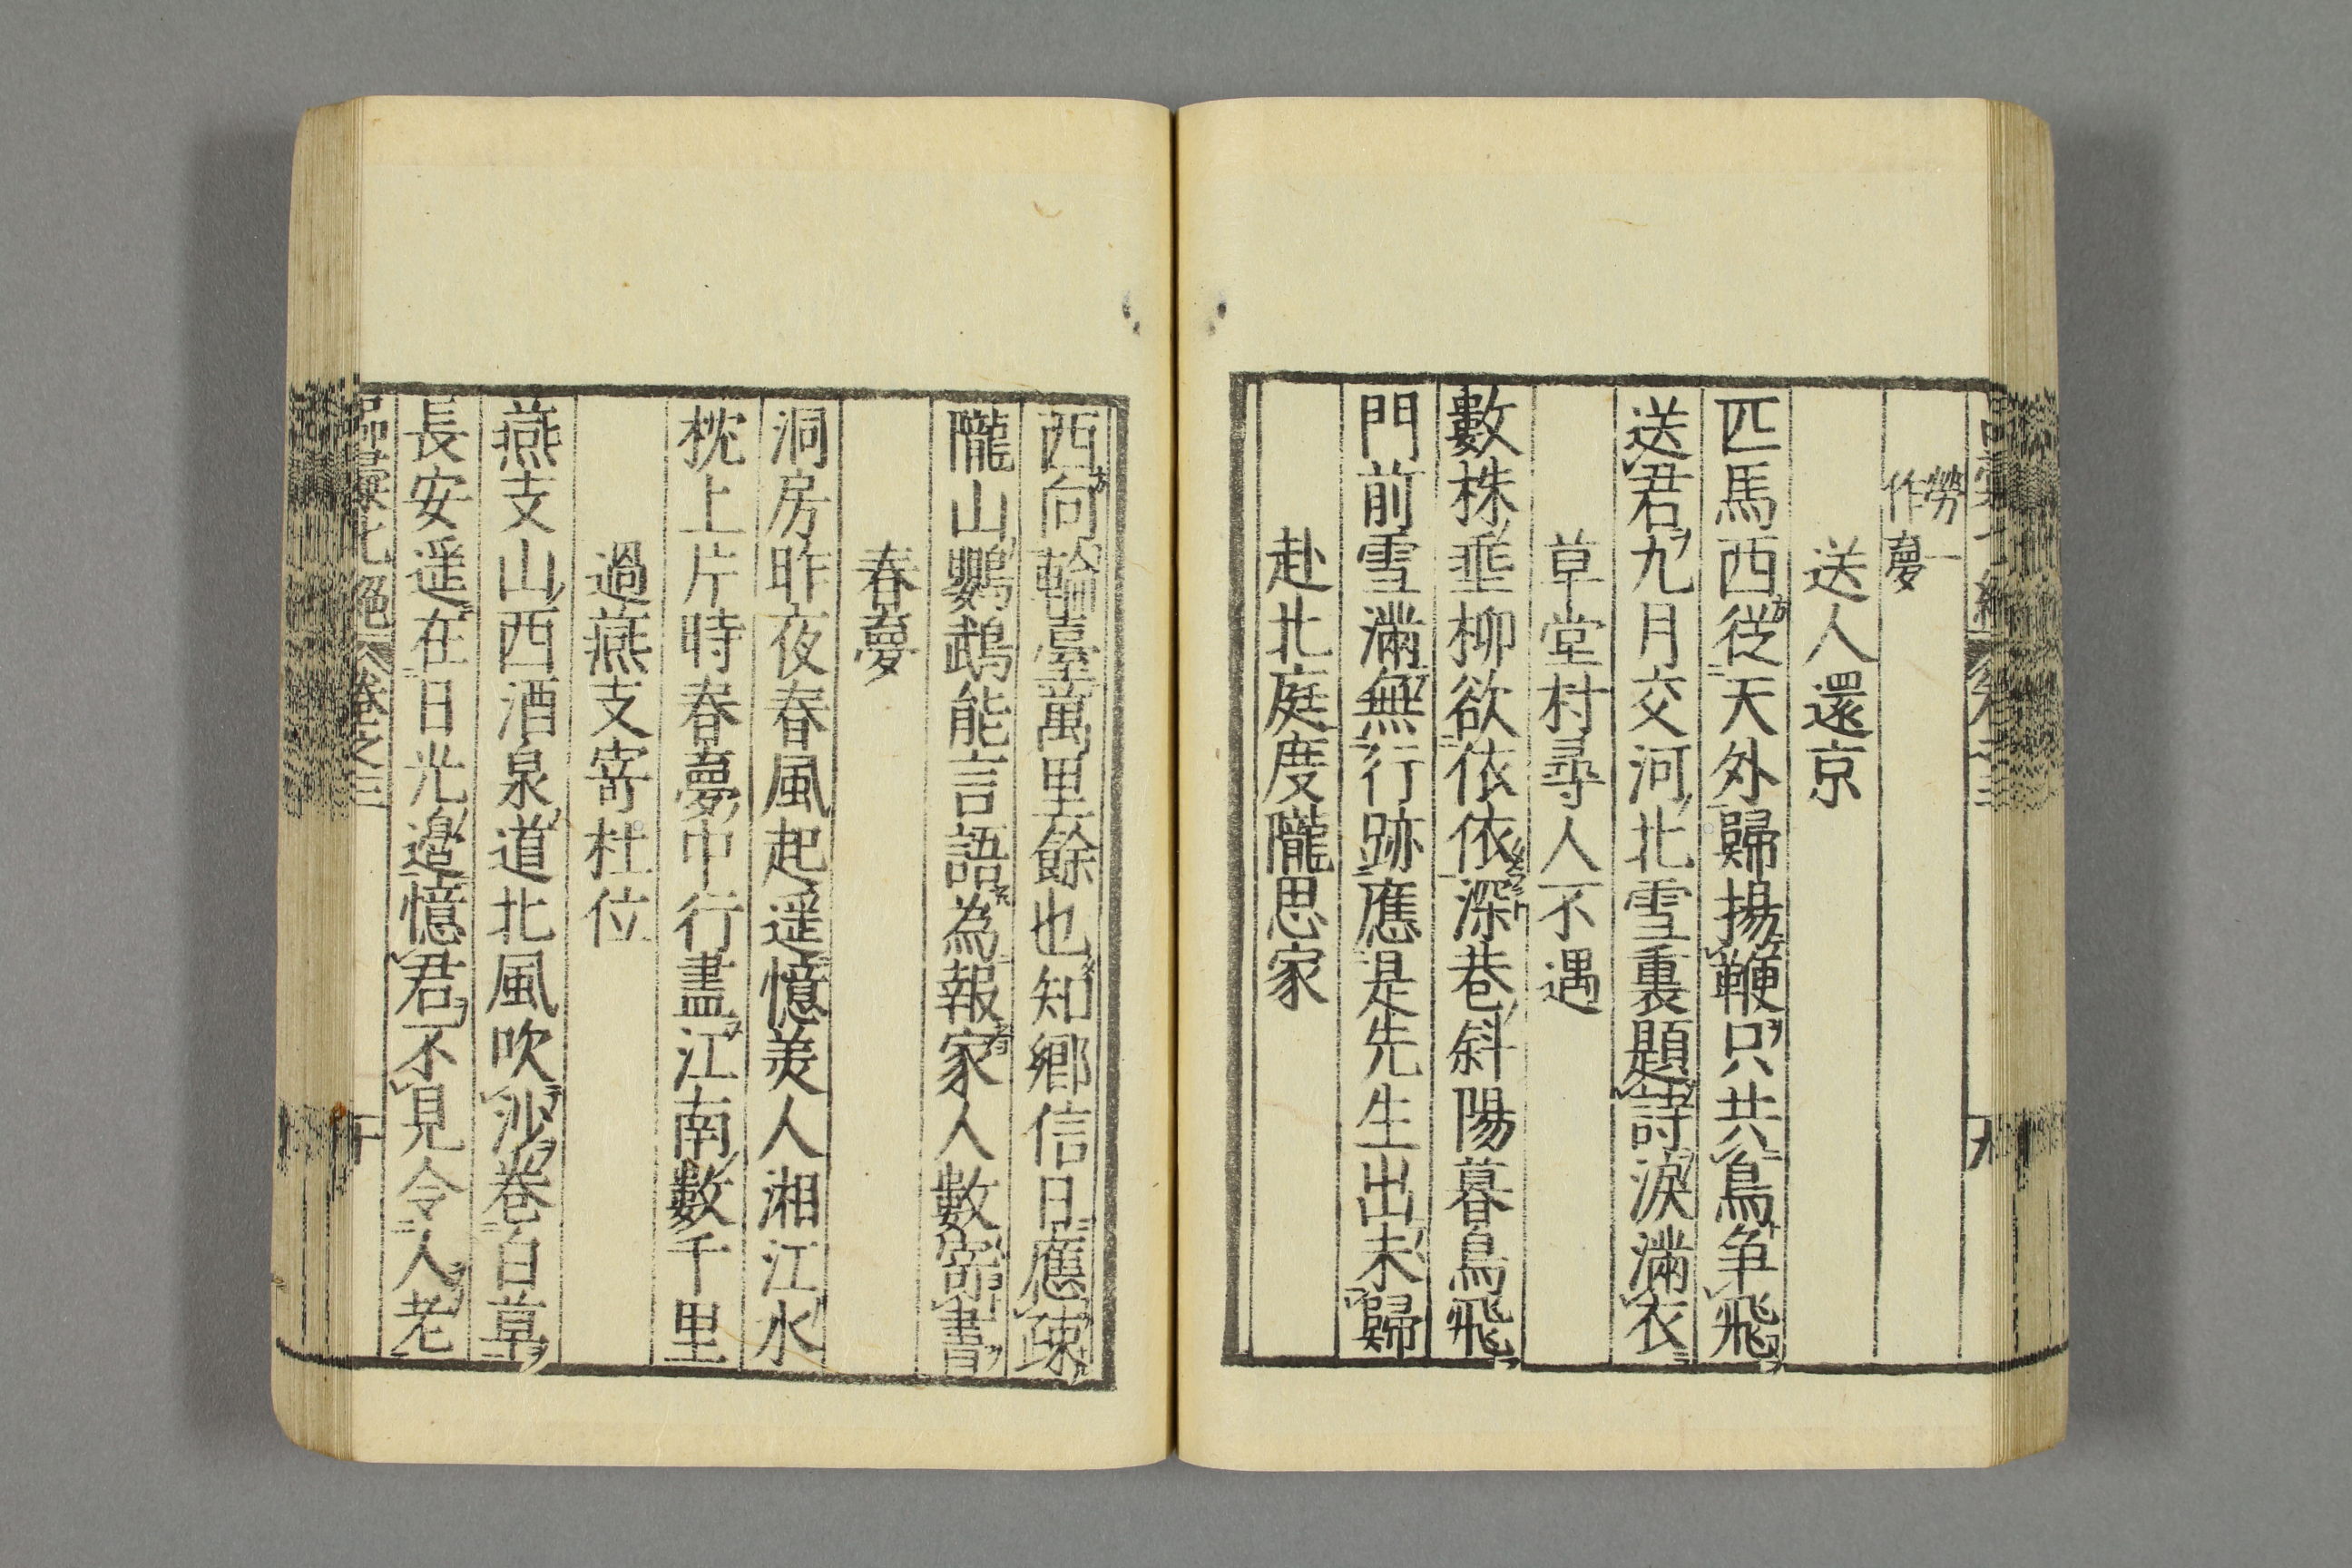 勞一
作夢
送人還京
匹馬西從天外歸揚鞭只共鳥争飛
送君九月交河北雪裏題詩淚滿衣
草堂村尋人不遇
數株垂柳欲依依深巷斜陽暮鳥飛
門前雪滿無行跡應是先生出未歸
赴北庭度隴思家
西向輪臺萬里餘也知鄉信日應疎
隴山鸚鵡能言語為報家人數寄書
春夢
洞房昨夜春風起遥憶美人湘江水
枕上片時春夢中行盡江南數千里
過燕支寄杜位
燕支山西酒泉道北風吹沙卷白草
長安遥在日光邉憶君不見令人老
卷之三